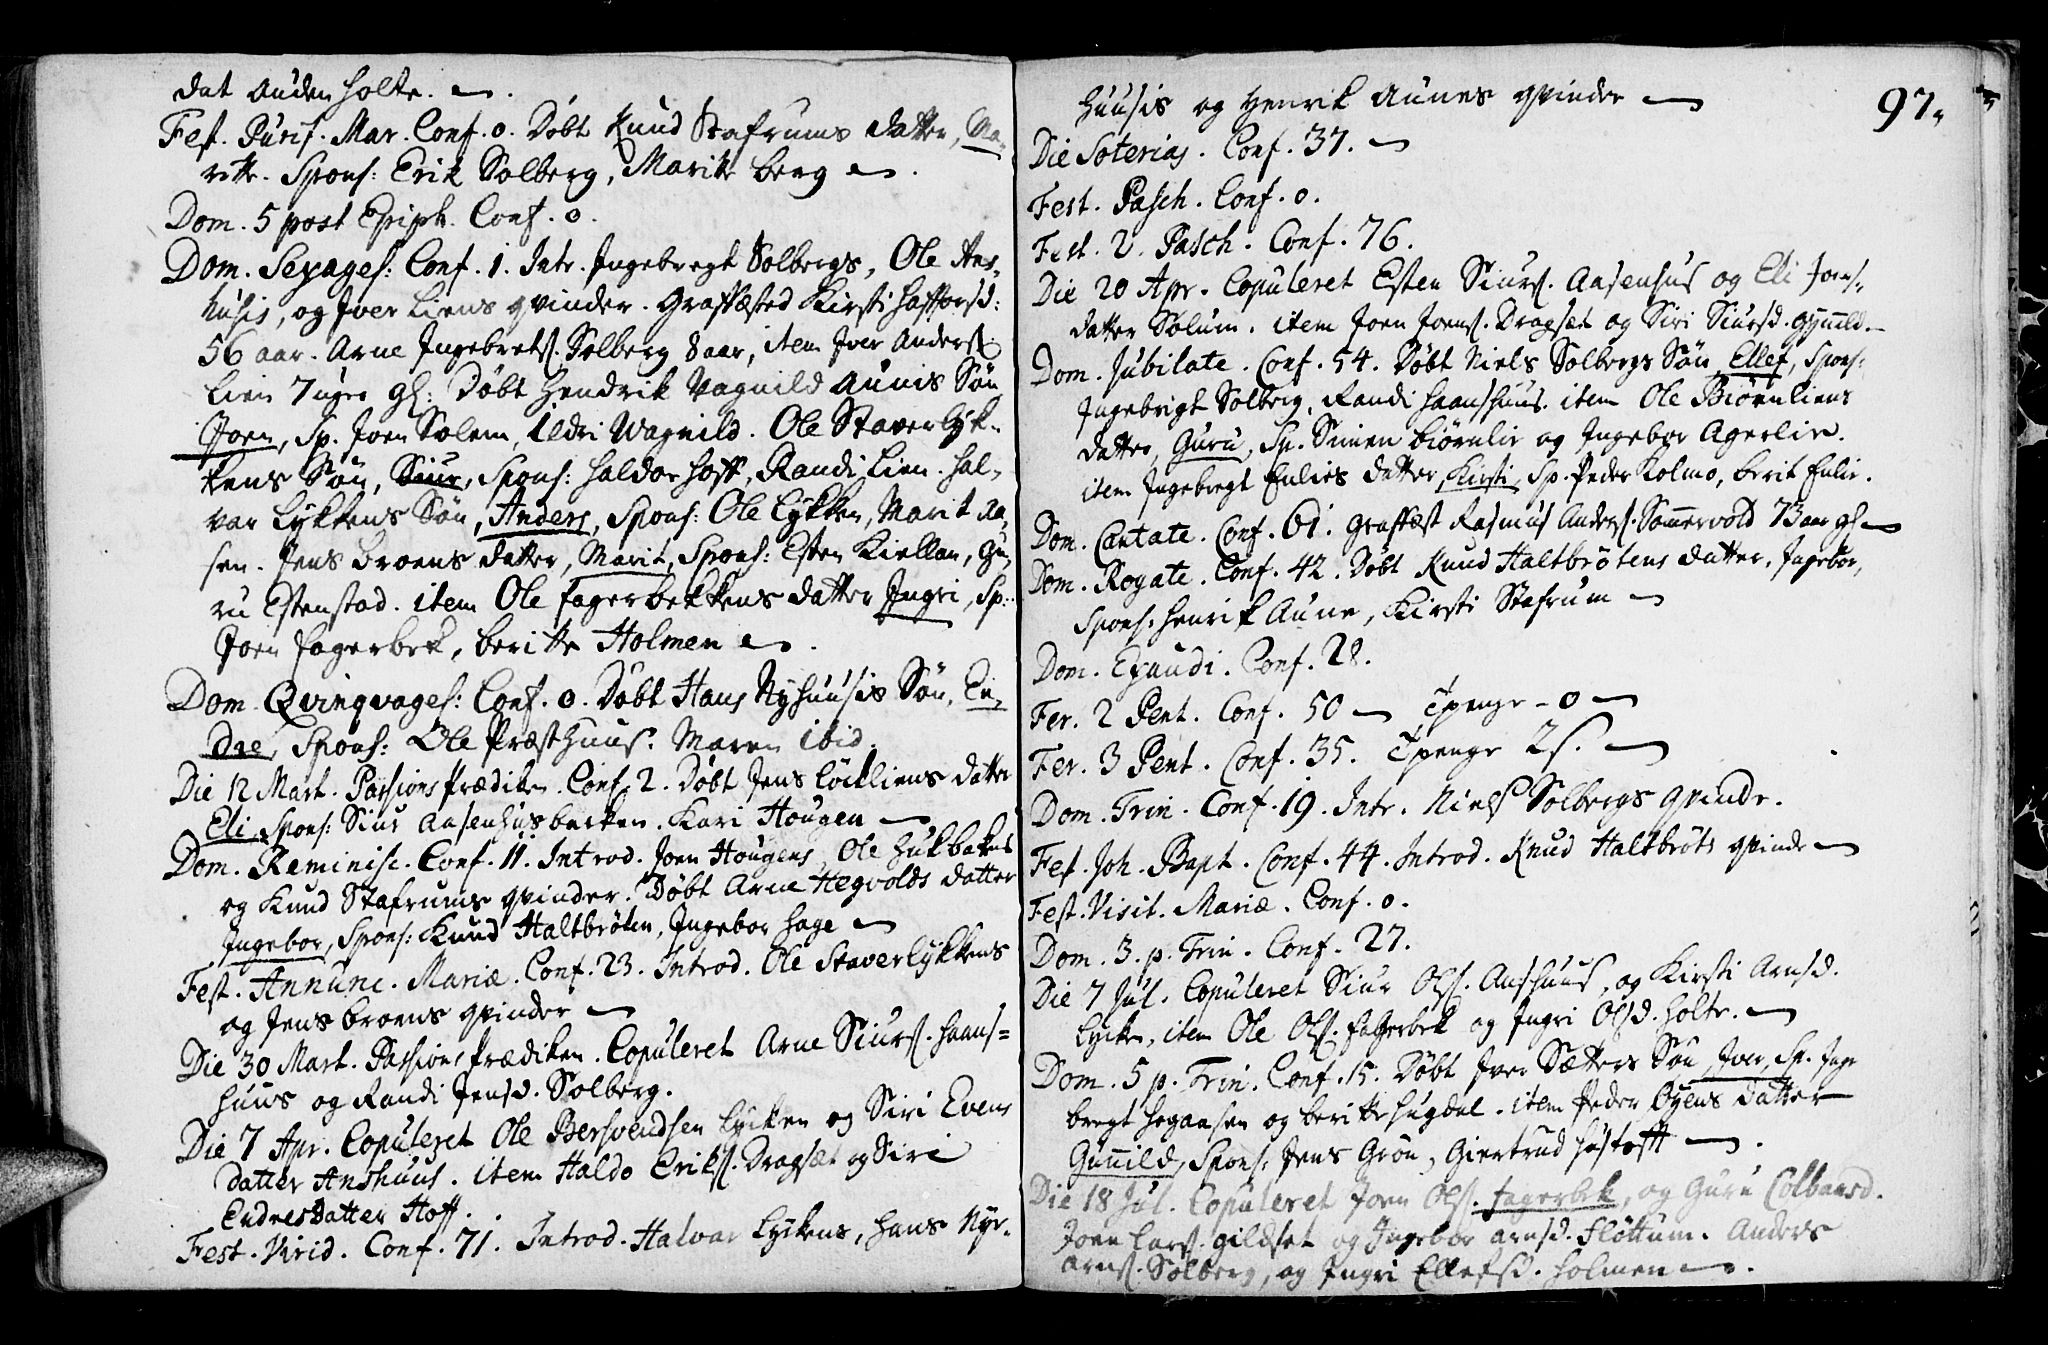 dat Auden Holte.
Fest. Purif. Mar. Conf. 0. Döbt Knud Stafrums datter, Ma-
ritte. Spons: Erik Solberg, Maritte berg
Dom. 5 post Epiph. Conf. 0.
Dom. Sexages: Conf. 1. Intr. Ingebregt Solbergs, Ole Ans-
husis, og Iver Liens qvinder. Graffæsted Kirsti Haftorsd:
56 aar. Arne Ingebrets. Solberg 8 aar, item Iver Anders.
Lien 7 uger gl: Döbt Hendrik Vagnild Aunis Sön
Joen, Sp. Joen Solem, Ildri Wagnild. Ole Staverlyk-
kens Sön, Siur, Spons: Haldor Hoff, Randi Lien. Hal-
var Lykkens Sön, Anders, Spons: Ole Lykken, Marit Aa-
sen. Jens broens datter, Marit, Spons: Esten Kiellan, Gu-
ru Estenstad. item Ole fagerbekkens datter Ingri, Sp:
Joen fagerbek, beritte Holmen
Dom. Qvinqvages: Conf. 0. Döbt Hans Nyhuusis Sön, En-
dre, Spons: Ole Præsthuus. Maren ibid.
Die 12 Mart. Passions Prædiken. Conf. 2. Döbt Jens Löcliens datter
Eli, Spons: Siur Aasenhusbacken. Kari Hougen
Dom. Reminisc. Conf. 11. Introd. Joen Hougens, Ole Hukbakens
og Knud Stafrums qvinder. Döbt Arne Hegvolds datter
Ingebor, Spons: Knud Haltbröten, Ingebor Hage
Fest. Annunc. Mariæ. Conf. 23. Introd. Ole Staverlykkens
og Jens broens qvinder
Die 30 Mart. Passions Prædiken. Copuleret Arne Siurs. Haans-
huus og Randi Jensd. Solberg.
Die 7 Apr. Copuleret Ole Bersvendsen Lycken og Siri Evens
datter Anshuus. item Haldo Eriks. Dragset og Siri
Endresdatter Hoff.
Fest. Virid. Conf. 71. Introd. Halvar Lyckens, Hans Nye-
97.
huusis og Henrik Aunes qvinder
Die Soterias. Conf. 37.
Fest. Pasch. Conf. 0.
Fest. 2. Pasch. Conf. 76.
Die 20 Apr. Copuleret Esten Siurs. Aasenhus og Eli Joens-
datter Solum. item Joen Joens. Dragset og Siri Siursd. Gynild.
Dom. Jubilate. Conf. 54. Döbt Niels Solbergs Sön, Ellef, Spons:
Ingebrigt Solberg, Randi Haanshuus. item Ole Biörnliens
datter, Guru, Sp. Simen biörnlie og Ingebor Agerlie.
item Ingebregt Enlies datter, Kirsti, Sp. Peder Kolmo, berit Enlie.
Dom. Cantate. Conf. 61. Graffæst Rasmus Anders. Sommervold 73 aar gl
Dom. Rogate. Conf. 42. Döbt Knud Haltbrötens datter, Ingebor,
Spons: Henrik Aune, Kirsti Stafrum
Dom. Exaudi. Conf. 28.
Fer. 2 Pent. Conf. 50 Tpenge - 0
Fer. 3 Pent. Conf. 35. Tpenge 2 s.
Dom. Trin. Conf. 19. Intr. Niels Solbergs qvinde.
Fest. Joh. Bapt. Conf. 44. Introd. Knud Haltbröts qvinde
Fest. Visit. Mariæ. Conf. 0.
Dom. 3. p. Trin. Conf. 27.
Die 7 Jul. Copuleret Siur Ols. Anshuus, og Kirsti Arnsd.
Lycken, item Ole Ols. fagerbek og Ingri Olsd. Holte.
Dom. 5 p. Trin. Conf. 15. Döbt Iver Sætters Sön, Iver, Sp. Inge
bregt Hogaasen og beritte Hugdal. item Peder Öyens datter
Gunnild, Spons: Jens Grön, Giertrud Hustofft
Die 18 Jul. Copuleret Joen Ols. fagerbek, og Guru Colbansd.
Joen Lars. Gildset og Ingebor Arnsd. Flöttum. Anders
Arns. Solberg, og Ingri Ellefsd. Holmen